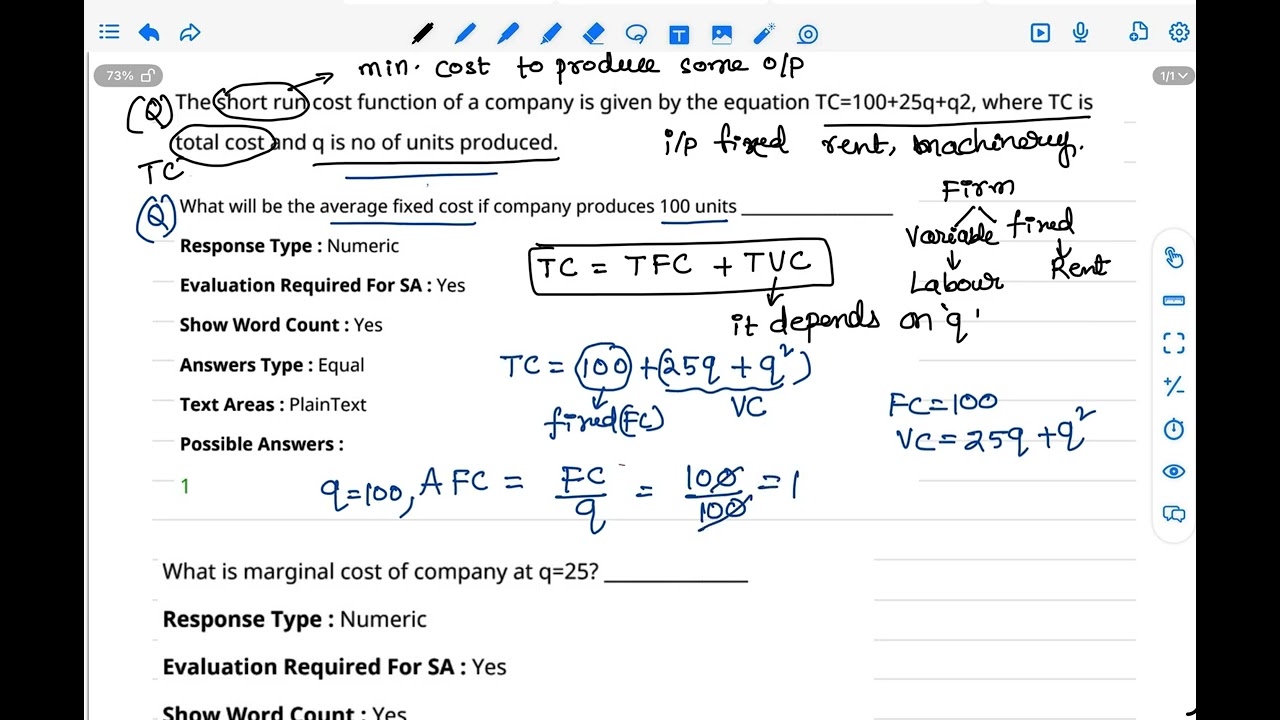 73%
1/1
min. cost to produce some o/p
(Q) The short run cost function of a company is given by the equation TC=100+25q+q2, where TC is
total cost and q is no of units produced.
i/p fixed rent, machinery.
TC
Firm
Variable fixed
Labour Rent
(Q) What will be the average fixed cost if company produces 100 units _______________
Response Type : Numeric
TC = TFC + TVC
Evaluation Required For SA : Yes
it depends on 'q'
Show Word Count : Yes
Answers Type : Equal
TC = 100 + (25q + q²)
fixed (FC) VC
FC = 100
VC = 25q + q²
Text Areas : PlainText
Possible Answers :
1
q=100, AFC = FC/q = 100/100 = 1
What is marginal cost of company at q=25? _____________
Response Type : Numeric
Evaluation Required For SA : Yes
Show Word Count : Yes